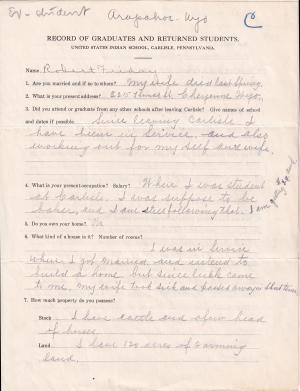 Ex-student Arapahoe. Wyo
RECORD OF GRADUATES AND RETURNED STUDENTS,
UNITED STATES INDIAN SCHOOL, CARLISLE, PENNSYLVANIA.
Name Robert Friday
1. Are you married and if so to whom? My wife died last Spring
2. What is your present address? Cheyenne Wyo.
3. Did you attend or graduate from any other schools after leaving Carlisle? Give names of school
and dates if possible. Since leaving Carlisle I
have been in service, and also
working out for my self and wife.
4. What is your present occupation? Salary? When I was student
at Carlisle. I was suppose to be
baker, and I am still following that.
5. Do you own your home? No
6. What kind of a house is it? Number of rooms?
I was in service
when I got married, and intend to
build a home but since luck came
to me, my wife took sick and passed away in short time
7. How much property do you possess?
Stock I have cattle and a few head
of horses
Land I have 120 acres of farming
land.